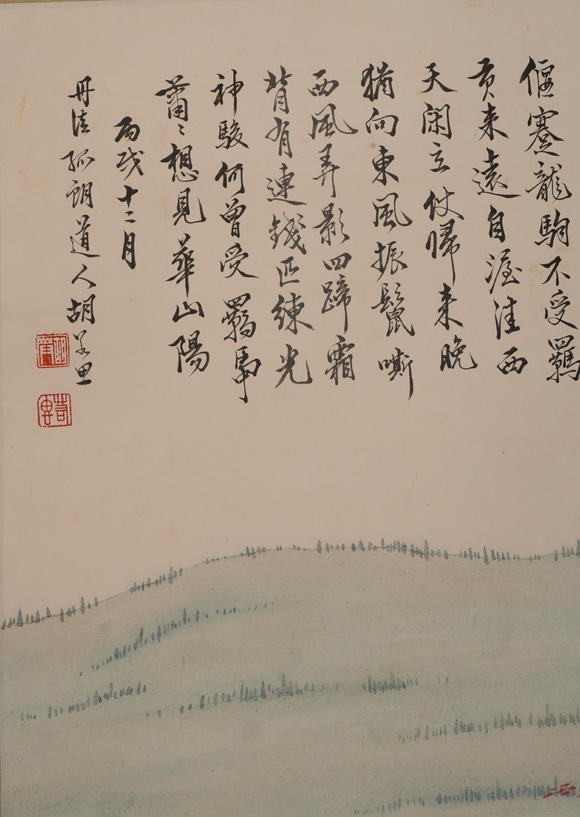 偃蹇龍駒不受羈
貢来遠自渥洼西
天閑立仗歸来晚
猶向東風振鬣嘶
西風弄影四蹄霜
背有連錢匹練光
神駿何曾受羈
蕭〻想見華山陽
丙戌十二月
丹徒孤朗道人胡若思